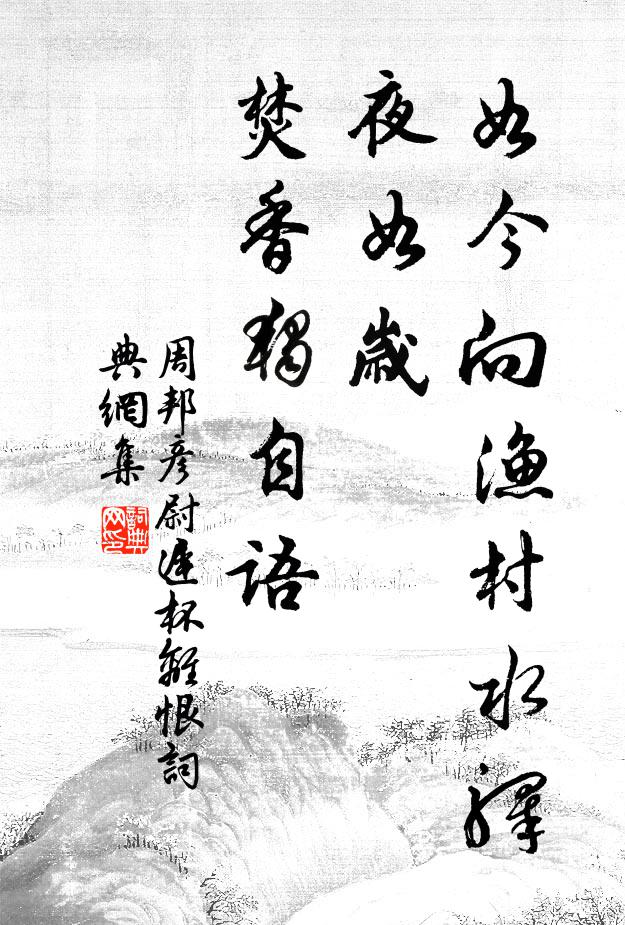 如今向漁村水驛
夜如歲
焚香獨自語
周邦彥尉遲杯離恨詞
典網集
詞典
网印